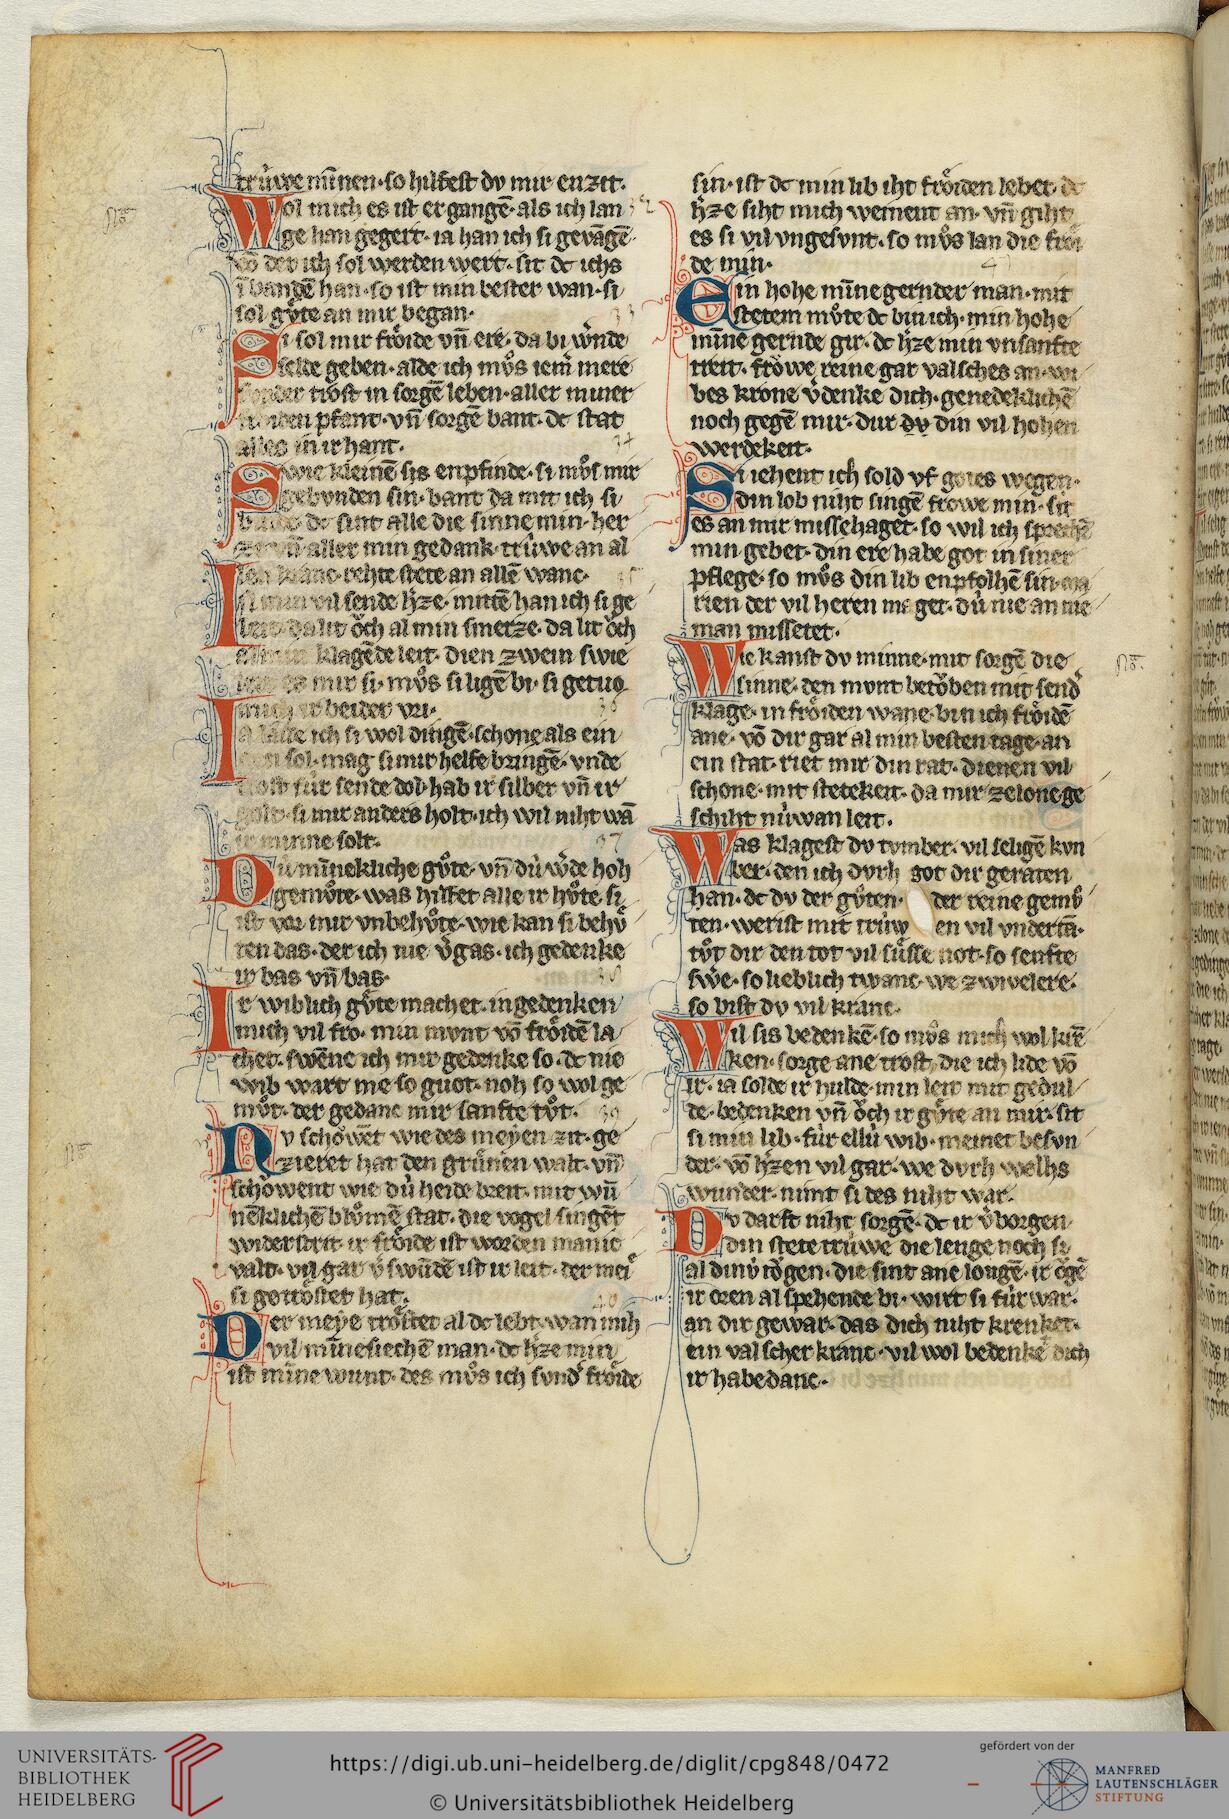 trúwe minnen· so hilfest dv mir enzit·
Wol mich es ist ergangē· als ich lan
ge han gegert· ia han ich si gevāgē·
vō der ich sol werden wert· sit dc ichs
ī bangē han· so ist min bester wan· si
sol gůte an mir began·
Si sol mir froͤide vn̄ ere· da bi w͛nde
selde geben· alde ich mvͦs iem̄ mere
sunder trost in sorgē leben· aller miner
froiden pfant· vn̄ sorgē bant· dc stat
alles in ir hant·
Swie kleinē sis enpfinde· si mvͦs mir
gebvnden sin· bant da mit ich si
binde dc sint alle die sinne min· her
ze vn̄ aller min gedank· trúwe an al
len kranc· rehte stete an allē wanc·
In min vil sende h͛ze· mittē han ich si ge
leit· da lit oͮch al min smerze· da lit oͮch
alles min klagēde leit· dien zwein swie
leit es mir si· mvͦs si ligē bi· si getuo
mich ir beider vri·
Ja lasse ich si wol dingē· schone als ein
sol· mag si mir helfe bringē· vnde
trost fúr sende dol· hab ir silber vn̄ ir
golt· si mir anders holt· ich wil niht wā
ir minne solt·
Dú minnekliche gůte· vn̄ dú w͛de hoh
gemůte· was hilfet alle ir hůte· si
ist vor mir vnbehůte· wie kan si behů
ten das· der ich nie v͛gas· ich gedenke
ir bas vn̄ bas·
Ir wiblich gůte machet· in gedenken
mich vil fro· min mvnt vō froͤidē la
chet· swēne ich mir gedenke so· dc nie
wib wart me so guot· noh so wol ge
mvͦt· der gedanc mir sanfte tvͦt·
Nv schoͮwēt wie des meyen zit· ge
zieret hat den grúnen walt· vn̄
schoͮwent wie dú heide breit· mit wū
nēklichē blůmē stat· die vogel singēt
widerstrit· ir froͤide ist worden manic
valt· vil gar v͛swūdē ist ir leit· der mei
si getroͤstet hat·
Der meye troͤstet al dc lebt· wan mih
vil mīnesiechē man· dc h͛ze min
ist mīne wunt· des mvͦs ich svnd͛ froͤide
sin· ist dc min lib iht froͤiden lebet· dc
h͛ze siht mich weinent an· vn̄ giht
es si vil vngesvnt· so mvͦs lan die froͤi
de min·
Ein hohe mīne gernder man· mit
stetem můte dc bin ich· min hohe
mīne gernde gir· dc h͛ze min vnsanfte
treit· froͮwe reine gar valsches an· wi
bes krone v͛denke dich· genedeklichē
noch gegē mir· dur dv din vil hohen
werdekeit·
Si iehent ich sold vf gotes wegen·
din lob niht singē frowe min· sit
es an mir missehaget· so wil ich sprechē
min gebet· din ere habe got in siner
pflege· so mvͦs din lib enpfolhē sin· ma
rien der vil heren maget· dú nie an nie
man missetet·
Wie kanst dv minne· mit sorgē die
sinne· den mvnt betoͮben mit send͛
klage· in froͤiden wane· bin ich froͤidē
ane· vō dir gar al min besten tage· an
ein stat· riet mir din rat· dienen vil
schone· mit stetekeit· da mir ze lone ge
schiht núwan leit·
Was klagest dv tvmber· vil seligē kvn
ber· den ich dvrh got dir geraten
han· dc dv der gůten· der reine gemů
ten· werist mit trúw en vil vndertā·
tvͦt dir den tot vil sússe not· so senfte
sw͛e· so lieblich twanc· we zwivelere·
so bist dv vil kranc·
Wil sis bedenkē· so mvͦs mich wol krē
ken· sorge ane trost· die ich lide vō
ir· ia solde ir hulde· min leit mit gedul
de· bedenken vn̄ oͮch ir gůte an mir· sit
si min lib· fúr ellú wib· meinet besvn
der· vō h͛zen vil gar· we dvrh welhs
wunder· nimt si des niht war·
Dv darft niht sorgē· dc ir v͛borgen
din stete trúwe die lenge noch si·
al dinv toͮgen· die sint ane lougē· ir oͮgē
ir oren al spehende bi· wirt si fúr war·
an dir gewar· das dich niht krenket·
ein valscher kranc· vil wol bedenkē dich
ir habedanc·
UNIVERSITÄTS-
BIBLIOTHEK
HEIDELBERG
https://digi.ub.uni-heidelberg.de/diglit/cpg848/0472
© Universitätsbibliothek Heidelberg
gefördert von der
MANFRED
LAUTENSCHLÄGER
STIFTUNG